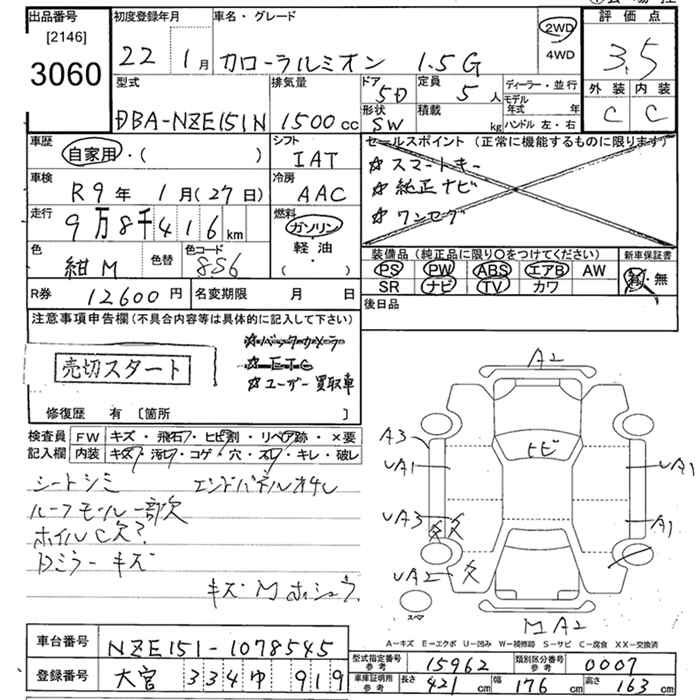 出品番号 初度登録年月 車名・グレード 評価点
[2146] 3060 22 1月 カローラルミオン 1.5G 2WD 4WD 3.5
型式 排気量 ドア 5D 定員 5人 ディーラー・並行 外装 内装
DBA-NZE151N 1500cc 形状 SW 積載 kg モデル年式 年 ハンドル 左・右 C C
車歴 自家用・( ) シフト IAT セールスポイント (正常に機能するものに限ります)
☆スマートキー
車検 R9年 1月(27日) 冷房 AAC ☆純正ナビ
走行 9万8千416km 燃料 ガソリン・軽油・( ) ☆ワンセグ
色 紺M 色替 色コード 8S6 装備品 (純正品に限り○をつけてください) 新車保証書
PS PW ABS エアB AW 有・無
R券 12600円 名変期限 月 日 SR ナビ TV カワ
後日品
注意事項申告欄(不具合内容等は具体的に記入して下さい)
☆バックカメラ
売切スタート ☆ETC
☆ユーザー買取車
修復歴 有 [箇所 ]
検査員記入欄 FW キズ・飛石・ヒビ割・リペア跡・×要
内装 キズ・汚レ・コゲ・穴・スレ・キレ・破レ
シートシミ エンドパネルオサレ
ルーフモール一部欠
ホイルC欠?
Dミラーキズ
キズMホシュウ
A2
A3 ヒビ
UA1 UA1
UA3 A1
UA2
スペア MA2
A-キズ E-エクボ U-凹み W-補修跡 S-サビ C-腐食 XX-交換済
車台番号 NZE151-1078545
型式指定番号 参考 15962 類別区分番号 参考 0007
登録番号 大宮 334 ゆ 919 車庫証明所 参考 長さ 421cm 幅 176cm 高さ 163cm